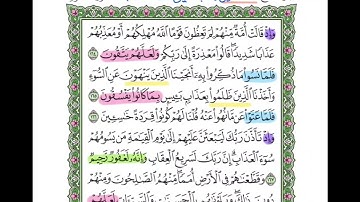 وَإِذْ قَالَتْ أُمَّةٌ مِّنْهُمْ لِمَ تَعِظُونَ قَوْمًا اللَّهُ مُهْلِكُهُمْ أَوْ مُعَذِّبُهُمْ
عَذَابًا شَدِيدًا قَالُوا مَعْذِرَةً إِلَىٰ رَبِّكُمْ وَلَعَلَّهُمْ يَتَّقُونَ ١٦٤
فَلَمَّا نَسُوا مَا ذُكِّرُوا بِهِ أَنجَيْنَا الَّذِينَ يَنْهَوْنَ عَنِ السُّوءِ
وَأَخَذْنَا الَّذِينَ ظَلَمُوا بِعَذَابٍ بَئِيسٍ بِمَا كَانُوا يَفْسُقُونَ ١٦٥
فَلَمَّا عَتَوْا عَن مَّا نُهُوا عَنْهُ قُلْنَا لَهُمْ كُونُوا قِرَدَةً خَاسِئِينَ ١٦٦
وَإِذْ تَأَذَّنَ رَبُّكَ لَيَبْعَثَنَّ عَلَيْهِمْ إِلَىٰ يَوْمِ الْقِيَامَةِ مَن يَسُومُهُمْ
سُوءَ الْعَذَابِ إِنَّ رَبَّكَ لَسَرِيعُ الْعِقَابِ وَإِنَّهُ لَغَفُورٌ رَّحِيمٌ
١٦٧ وَقَطَّعْنَاهُمْ فِي الْأَرْضِ أُمَمًا مِّنْهُمُ الصَّالِحُونَ وَمِنْهُمْ
دُونَ ذَٰلِكَ وَبَلَوْنَاهُم بِالْحَسَنَاتِ وَالسَّيِّئَاتِ لَعَلَّهُمْ